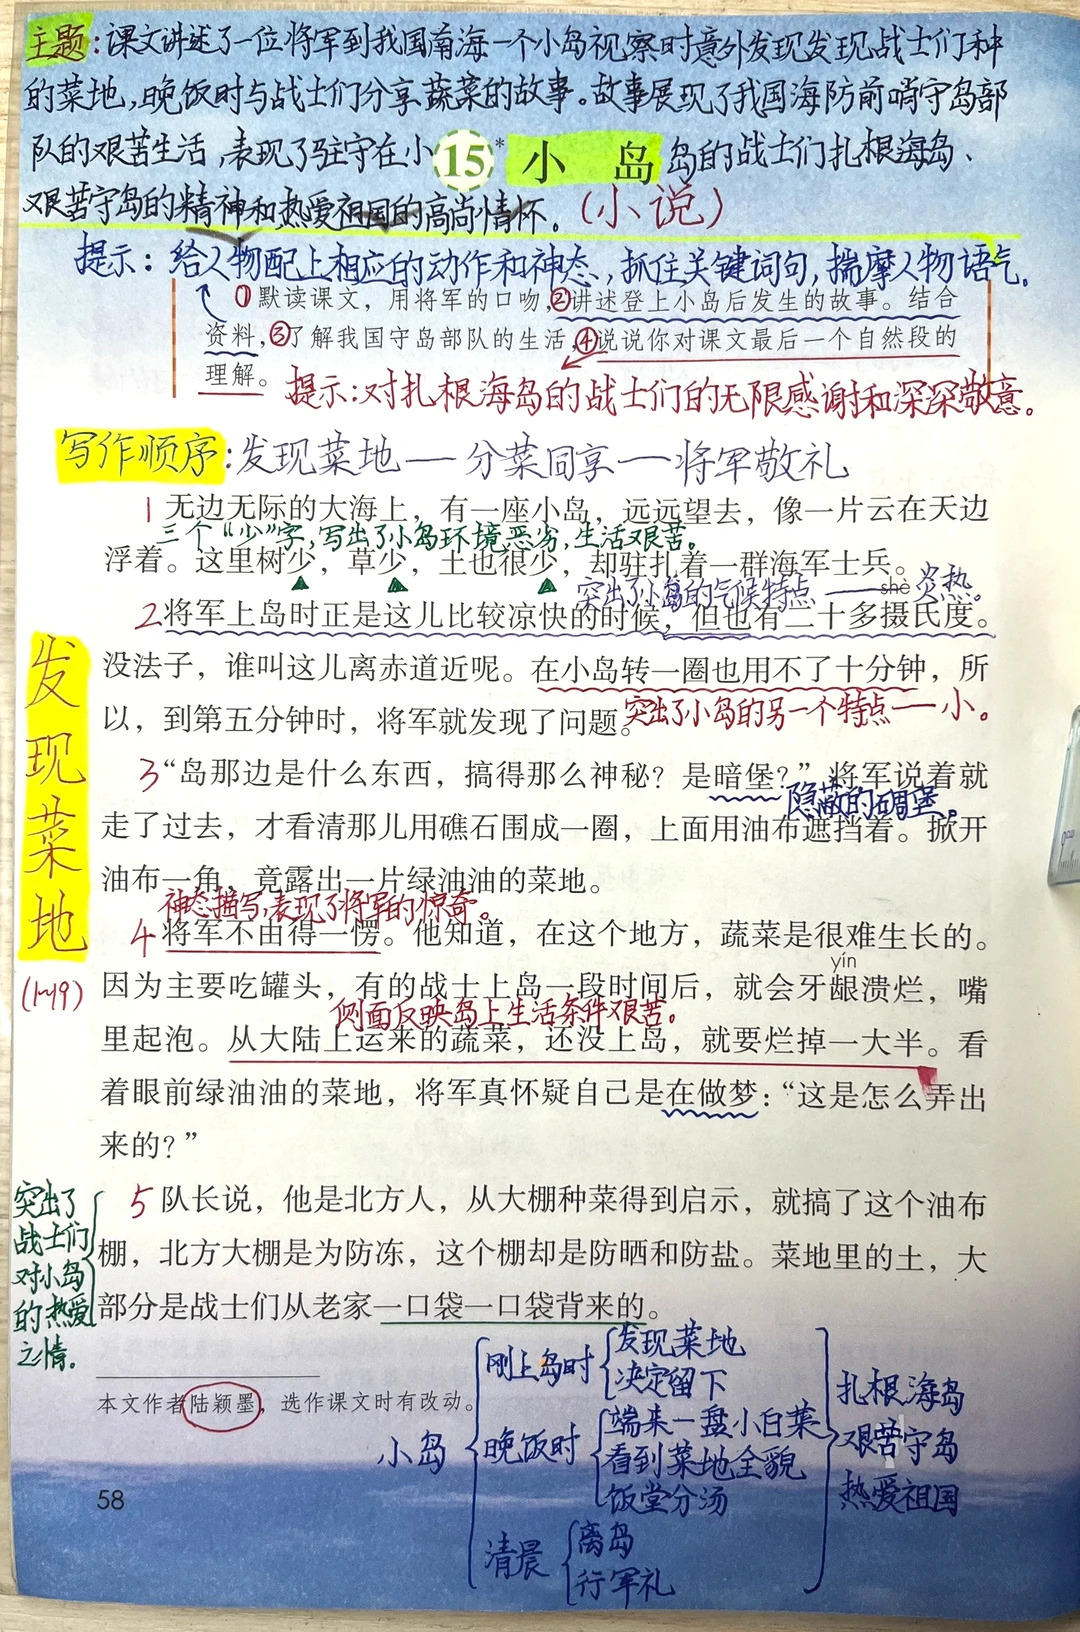 主题:课文讲述了一位将军到我国南海一个小岛视察时意外发现发现战士们种
的菜地,晚饭时与战士们分享蔬菜的故事。故事展现了我国海防前哨守岛部
队的艰苦生活,表现了驻守在小 15* 小 岛 岛的战士们扎根海岛、
艰苦守岛的精神和热爱祖国的高尚情怀。(小说)
提示:给人物配上相应的动作和神态,抓住关键词句,揣摩人物语气。
①默读课文，用将军的口吻,②讲述登上小岛后发生的故事。结合
资料,③了解我国守岛部队的生活,④说说你对课文最后一个自然段的
理解。
提示:对扎根海岛的战士们的无限感谢和深深敬意。
写作顺序:发现菜地—分菜同享—将军敬礼
1 无边无际的大海上，有一座小岛，远远望去，像一片云在天边
三个“少”字,写出了小岛环境恶劣,生活艰苦。
浮着。这里树少，草少，土也很少，却驻扎着一群海军士兵。
突出了小岛的气候特点——炎热。
shè
2将军上岛时正是这儿比较凉快的时候，但也有二十多摄氏度。
没法子，谁叫这儿离赤道近呢。在小岛转一圈也用不了十分钟，所
以，到第五分钟时，将军就发现了问题。
突出了小岛的另一个特点——小。
3“岛那边是什么东西，搞得那么神秘？是暗堡？”将军说着就
隐蔽的碉堡。
走了过去，才看清那儿用礁石围成一圈，上面用油布遮挡着。掀开
油布一角，竟露出一片绿油油的菜地。
神态描写,表现了将军的惊奇。
4 将军不由得一愣。他知道，在这个地方，蔬菜是很难生长的。
yín
因为主要吃罐头，有的战士上岛一段时间后，就会牙龈溃烂，嘴
侧面反映岛上生活条件艰苦。
里起泡。从大陆上运来的蔬菜，还没上岛，就要烂掉一大半。看
着眼前绿油油的菜地，将军真怀疑自己是在做梦：“这是怎么弄出
来的？”
5 队长说，他是北方人，从大棚种菜得到启示，就搞了这个油布
棚，北方大棚是为防冻，这个棚却是防晒和防盐。菜地里的土，大
部分是战士们从老家一口袋一口袋背来的。
发现菜地
(1~19)
突出了
战士们
对小岛
的热爱
之情。
本文作者陆颖墨，选作课文时有改动。
小岛
刚上岛时
发现菜地
决定留下
晚饭时
端来一盘小白菜
看到菜地全貌
饭堂分汤
清晨
离岛
行军礼
扎根海岛
艰苦守岛
热爱祖国
58